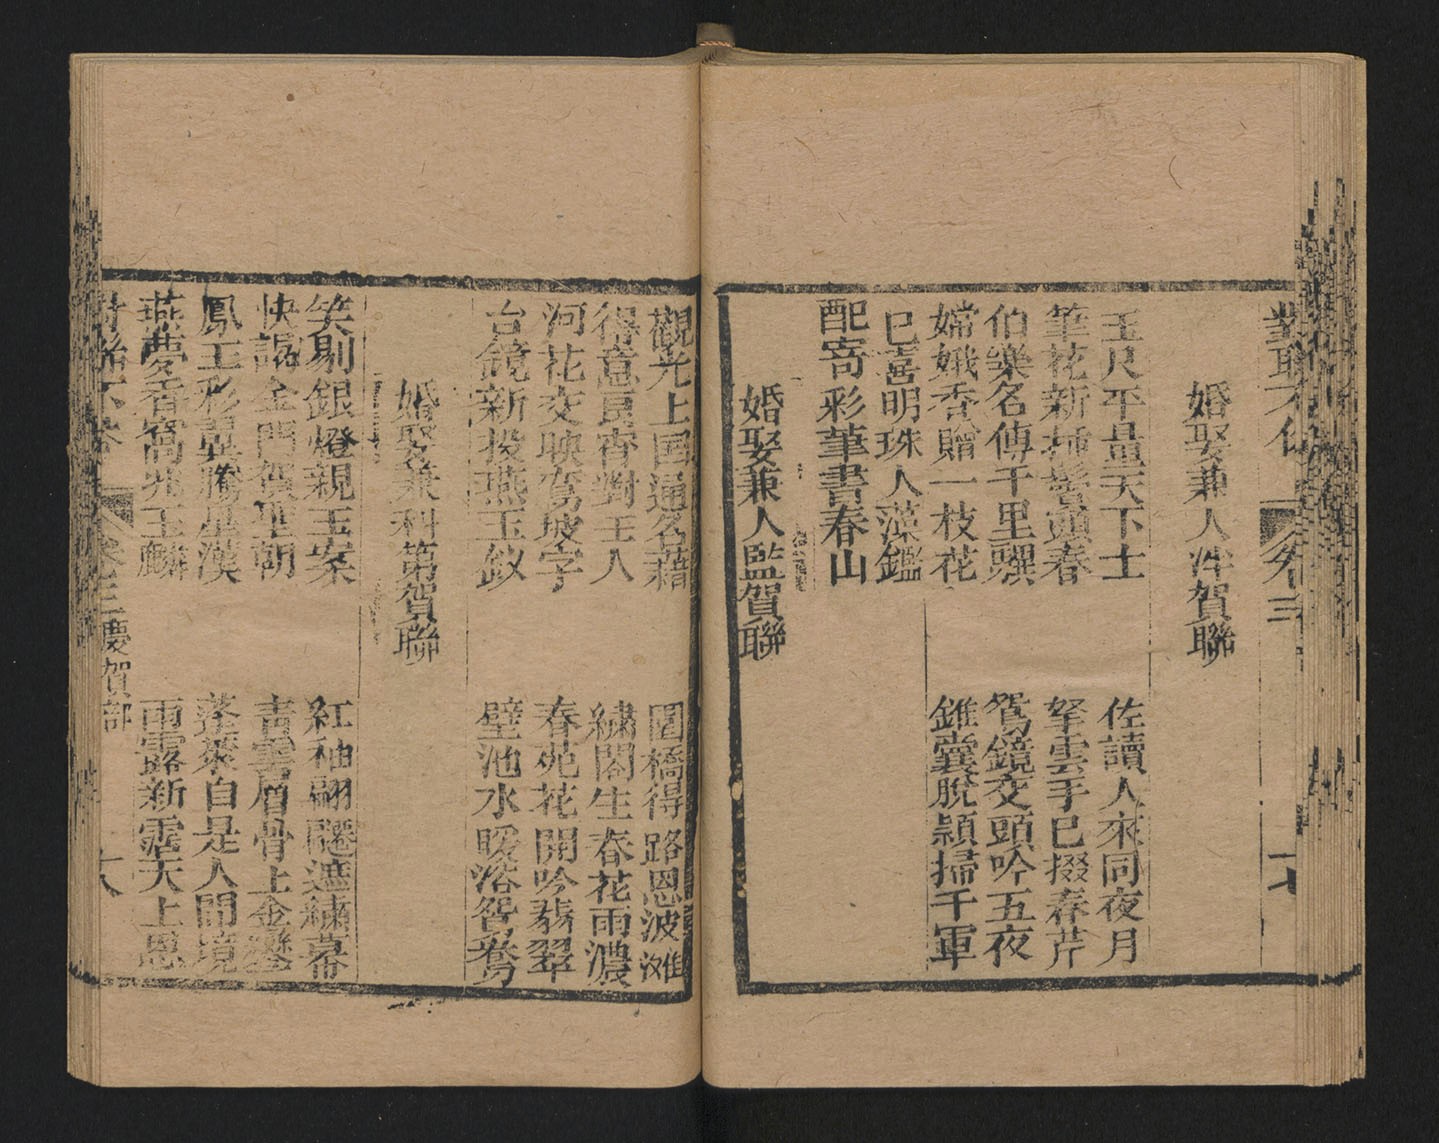 卷三
婚娶兼入泮賀聯
玉尺平量天下士
佐讀人來同夜月
筆花新揷鬢頭春
拏雲手已掇春芹
伯樂名傳千里驥
鴛鏡交頭吟五夜
嫦娥香贈一枝花
錐囊脫穎掃千軍
已喜明珠人藻鑑
配寄彩筆書春山
婚娶兼人監賀聯
觀光上国通名藉
圜橋得路恩波滩
得意良宵對玉人
繡閣生春花雨濃
河花交映鴛坡字
春苑花開吟翡翠
台鏡新投燕玉釵
壁池水暖浴鴛鴦
婚娶兼科第賀聯
笑剔銀燈親玉案
紅袖翩躚遮繡幕
快謁金門賀聖朝
青雲層骨上金鑾
鳳玉彩翼騰星漢
蓬萊自是人間境
燕夢香窩兆玉麟
雨露新霑天上恩
卷三 慶賀部
十八